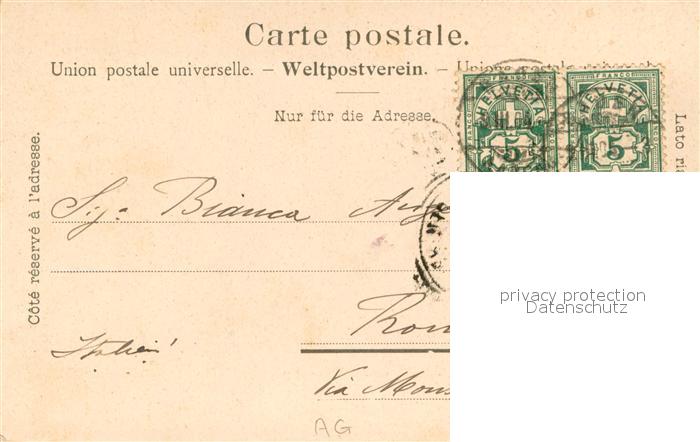 Carte postale.
Union postale universelle. – Weltpostverein. – Unione postale
Nur für die Adresse.
Côté réservé à l'adresse.
Lato
FRANCO FRANCO
HELVETIA HELVETIA
5 5
Sigª Bianca
Italien!
Via
AG
privacy protection
Datenschutz